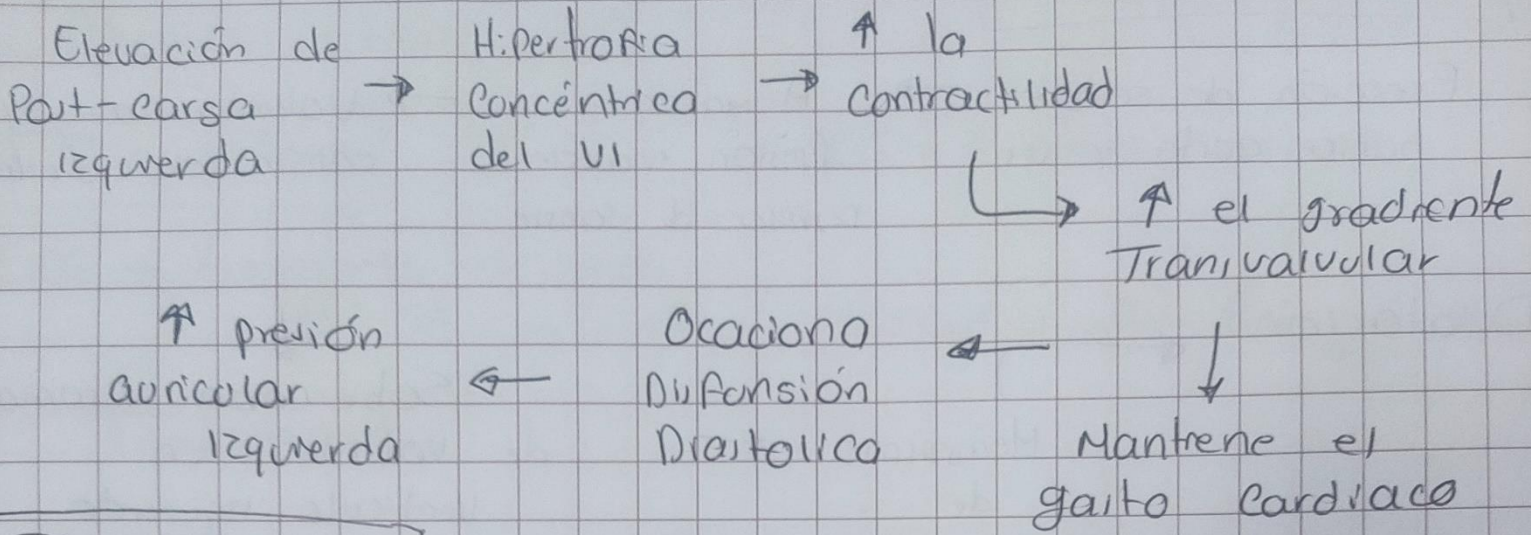 Elevación de
Post-carga
izquierda
→ Hipertrofia
Concéntrica
del VI
→ ↑ la
Contractilidad
→ ↑ el gradiente
Transvalvular
↓
Mantiene el
gasto Cardiaco
← Ocaciona
Disfansión
Diastolica
← ↑ presión
auricular
Izquierda